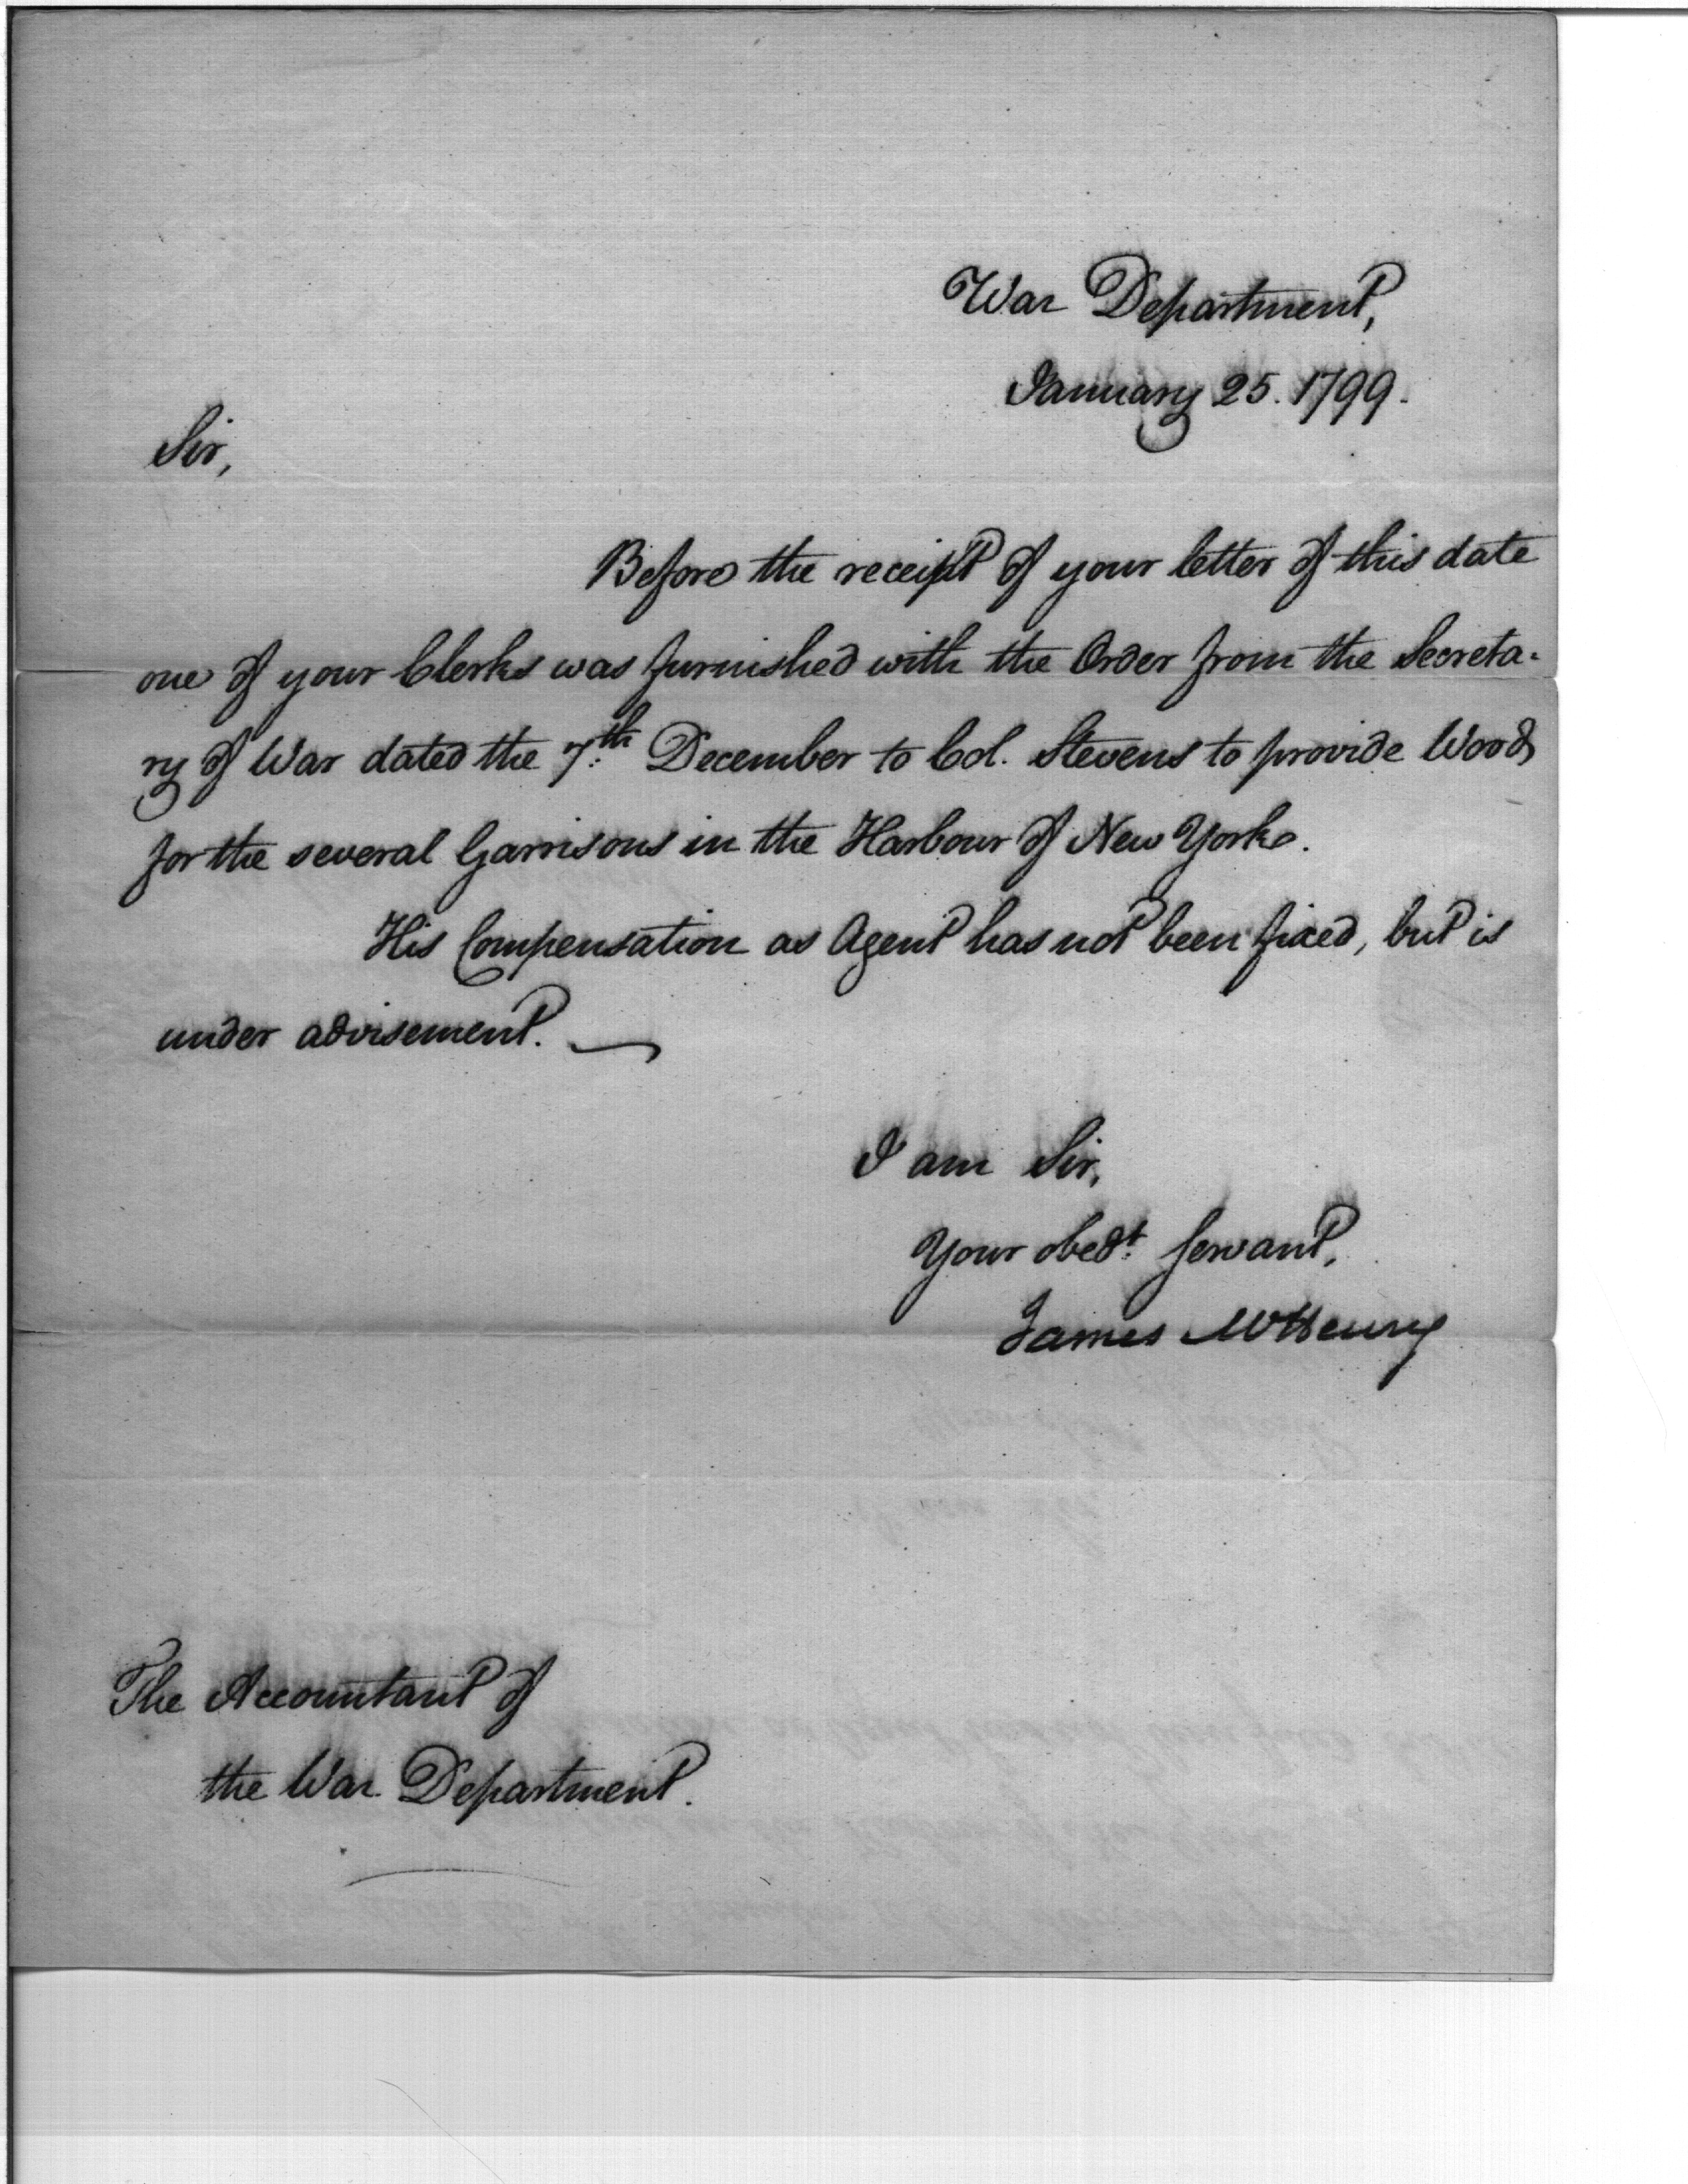 War Department,
January 25. 1799.
Sir,
Before the receipt of your letter of this date
one of your Clerks was furnished with the Order from the Secreta-
ry of War dated the 7th December to Col. Stevens to provide Wood
for the several Garrisons in the Harbour of New York.
His Compensation as Agent has not been fixed, but is
under advisement.
I am Sir,
Your obedt. Servant,
James McHenry
The Accountant of
the War Department.